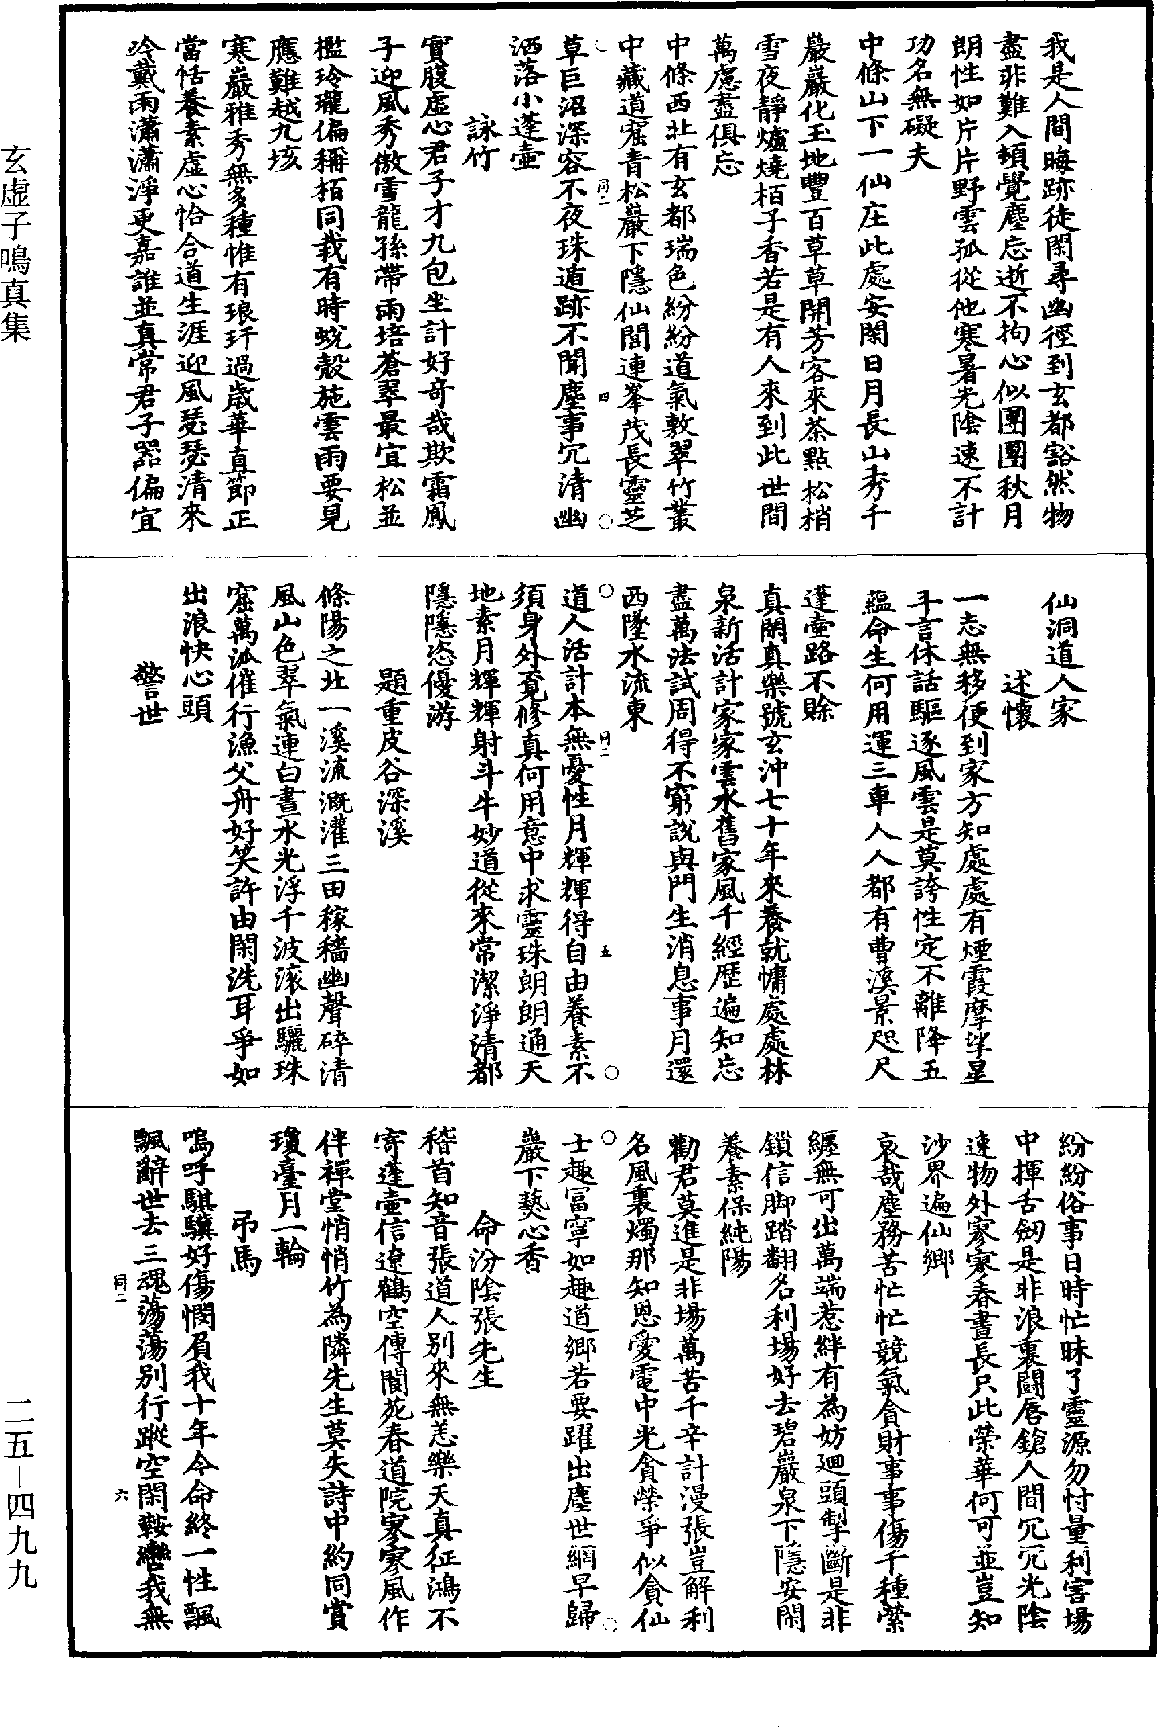 玄虛子鳴真集
二五—四九九
我是人間晦跡徒閑尋幽徑到玄都豁然物
盡非難入頓覺塵忘逝不拘心似團團秋月
朗性如片片野雲孤從他寒暑光陰速不計
功名無礙夫
中條山下一仙庄此處安閑日月長山秀千
巖巖化玉地豐百草草開芳客來茶點松梢
雪夜靜爐燒栢子香若是有人來到此世間
萬慮盡俱忘
中條西北有玄都瑞色紛紛道氣敷翠竹叢
中藏道窟青松巖下隱仙閭連峯茂長靈芝
草巨沼深容不夜珠遁跡不聞塵事冗清幽
洒落小蓬壺
詠竹
實腹虛心君子才九包坐計好奇哉欺霜鳳
子迎風秀傲雪龍孫帶雨培蒼翠最宜松並
檻玲瓏偏稱栢同栽有時蛻殼施雲雨要見
應難越九垓
寒巖雅秀無多種惟有琅玕過歲華真節正
當恬養素虛心恰合道生涯迎風瑟瑟清來
冷戴雨瀟瀟淨更嘉誰並真常君子器偏宜
仙洞道人家
述懷
一志無移便到家方知處處有煙霞摩挲星
斗言休話驅逐風雲是莫誇性定不離降五
蘊命生何用運三車人人都有曹溪景咫尺
蓬壺路不賒
真閑真樂號玄沖七十年來養就慵處處林
泉新活計家家雲水舊家風千經歷遍知忘
盡萬法試周得不窮說與門生消息事月還
西墜水流東
道人活計本無憂性月輝輝得自由養素不
須身外覓修真何用意中求靈珠朗朗通天
地素月輝輝射斗牛妙道從來常潔淨清都
隱隱恣優游
題重皮谷深溪
條陽之北一溪流溉灌三田稼穡幽聲碎清
風山色翠氣連白晝水光浮千波滾出驪珠
窟萬派催行漁父舟好笑許由閑洗耳爭如
出浪快心頭
警世
紛紛俗事日時忙昧了靈源勿忖量利害場
中揮舌劒是非浪裏鬭唇鎗人間冗冗光陰
速物外寥寥春晝長只此榮華何可並豈知
沙界遍仙鄉
哀哉塵務苦忙忙競氣貪財事事傷千種縈
纏無可出萬端惹絆有為妨廻頭掣斷是非
鎖信脚踏翻名利場好去碧巖泉下隱安閑
養素保純陽
勸君莫進是非場萬苦千辛計漫張豈解利
名風裏燭那知恩愛電中光貪榮爭似貪仙
士趣富寧如趣道鄉若要躍出塵世網早歸
巖下爇心香
命汾陰張先生
稽首知音張道人別來無恙樂天真征鴻不
寄蓬壺信遼鶴空傳閬苑春道院寥寥風作
伴禪堂悄悄竹為隣先生莫失詩中約同賞
瓊臺月一輪
弔馬
嗚呼騏驥好傷憫負我十年今命終一性飄
飄辭世去三魂蕩蕩別行蹤空閑鞍轡我無